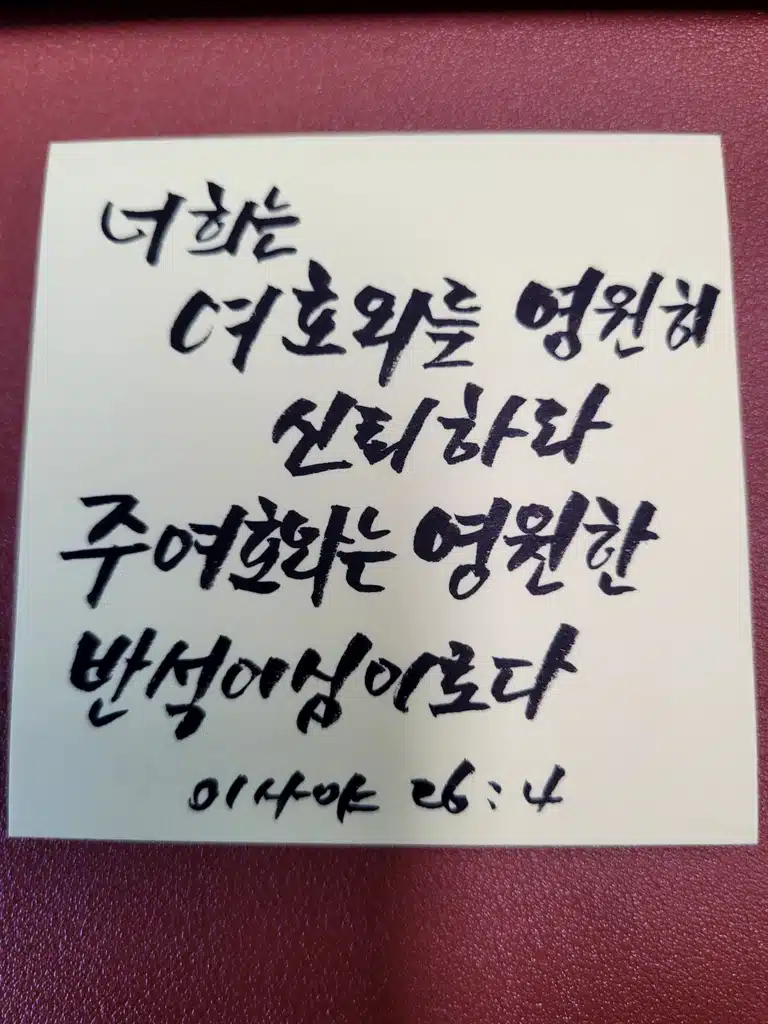 너희는
여호와를 영원히
신뢰하라
주 여호와는 영원한
반석이심이로다
이사야 26:4